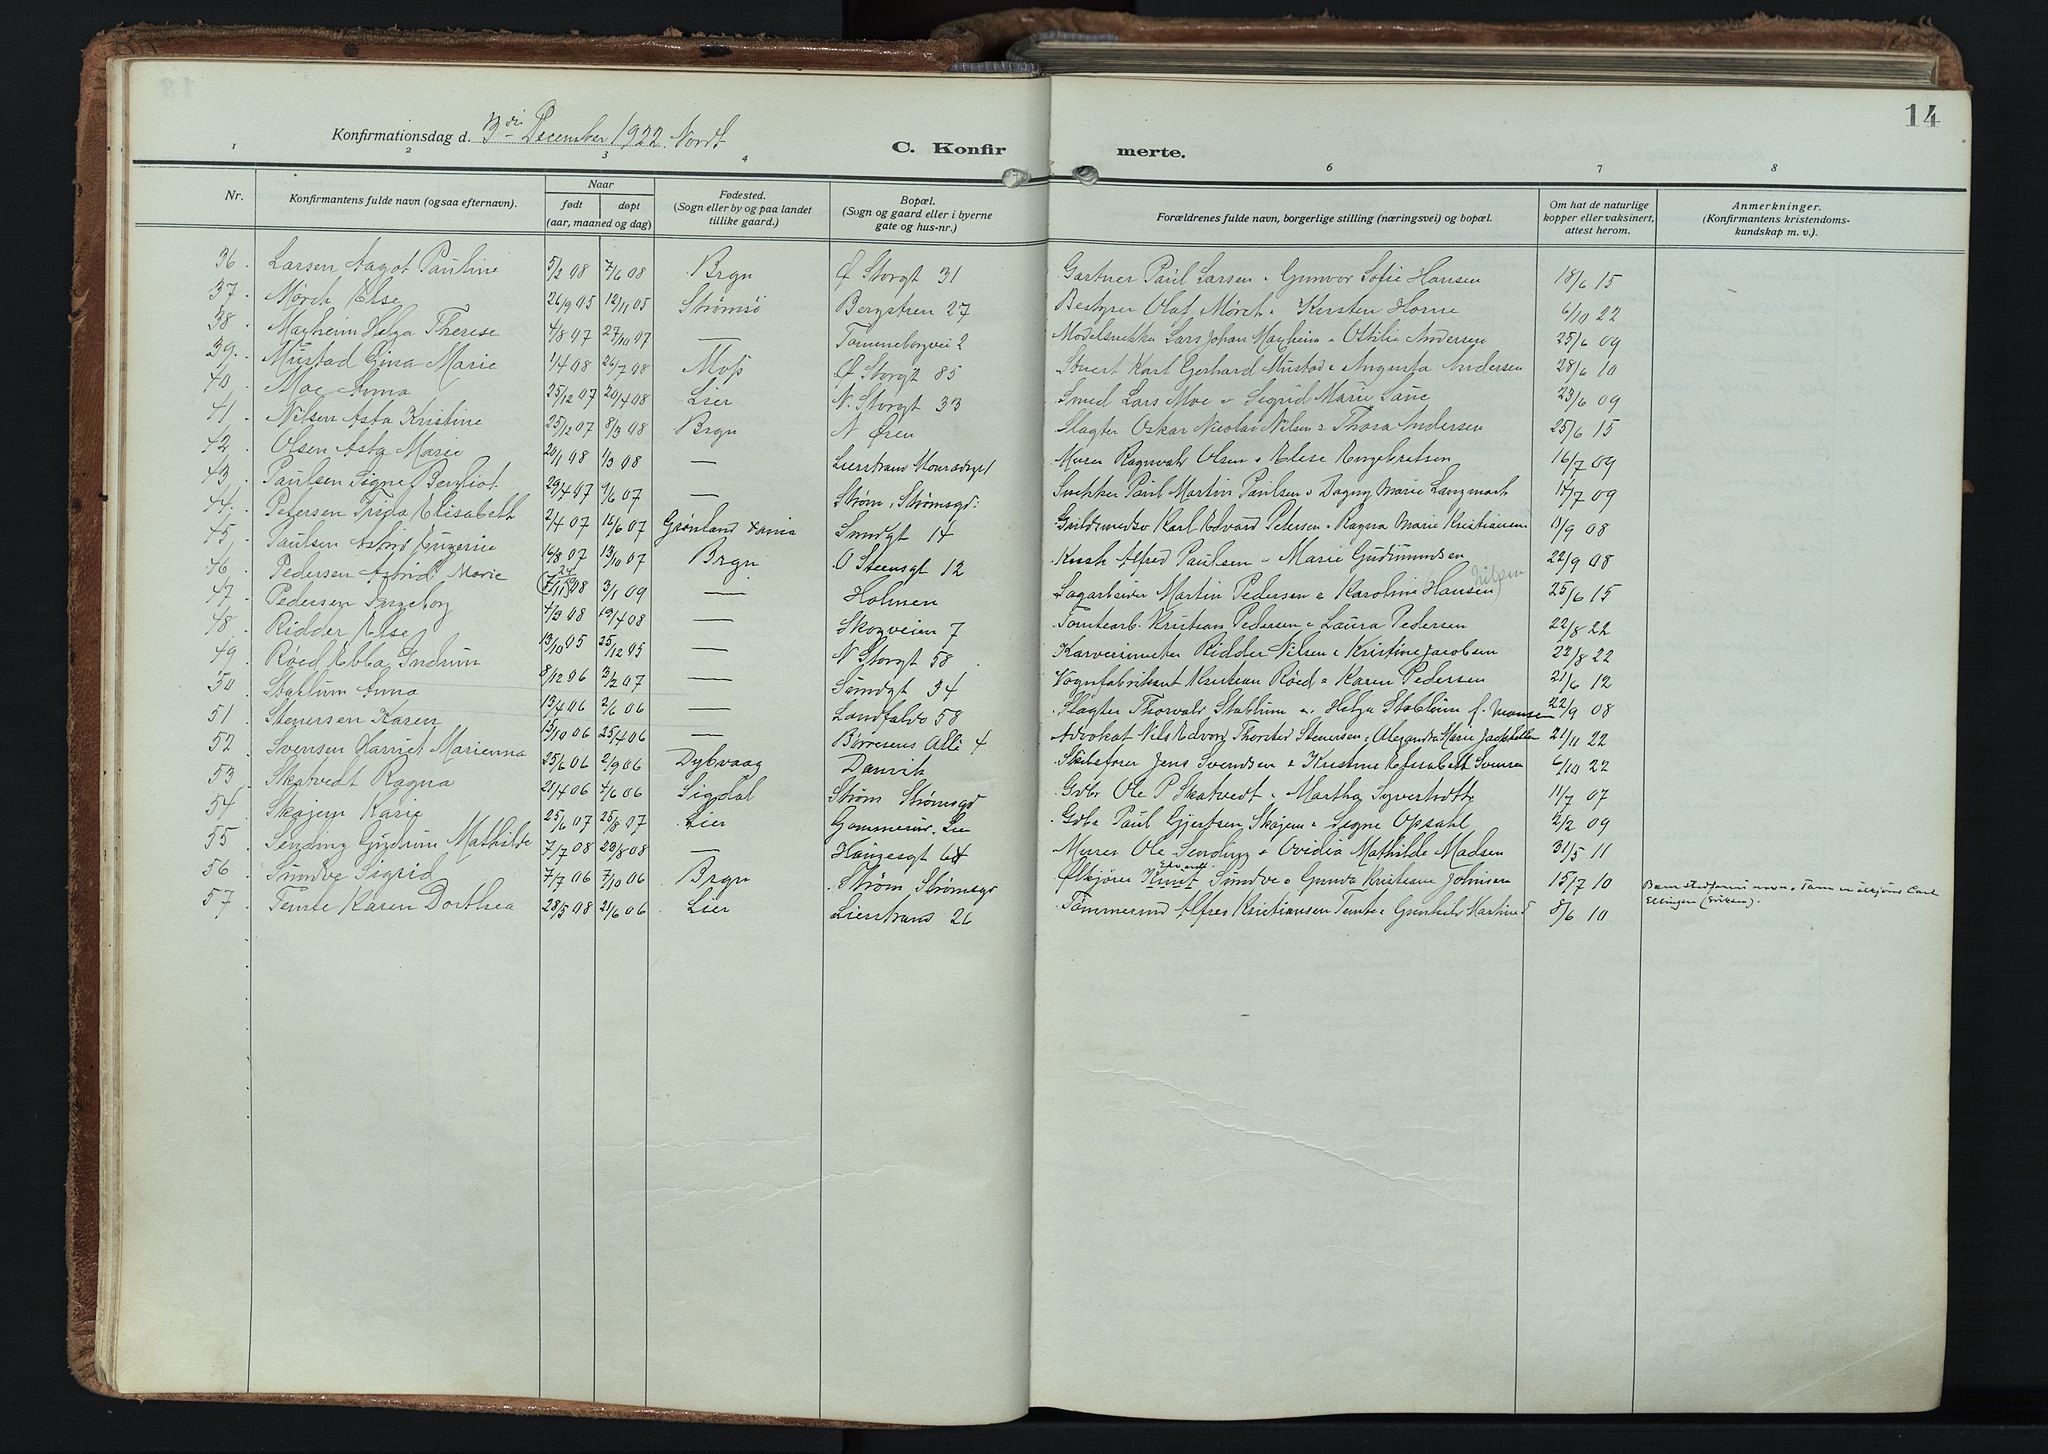 14
Konfirmationsdag d. 3die December 1922. Nordt
C. Konfirmerte.
1 2 3 4 6 7 8
Nr. Konfirmantens fulde navn (ogsaa efternavn). Naar født døpt (aar, maaned og dag) Fødested. (Sogn eller by og paa landet tillike gaard.) Bopæl. (Sogn og gaard eller i byerne gate og hus-nr.) Forældrenes fulde navn, borgerlige stilling (næringsvei) og bopæl. Om hat de naturlige kopper eller vaksinert, attest herom. Anmerkninger. (Konfirmantens kristendoms-kundskap m. v.).
36 Larsen Aagot Pauline 5/2 08 7/6 08 Brgn Ø Storgt 31 Gartner Paul Larsen o Gunvor Sofie Hansen 18/6 15
37 Mørch Else 26/9 05 12/11 05 Strømsø Bergstien 27 Bestyrer Olaf Mørch o Kirsten Horne 6/10 22
38 Mayheim Helga Therese 4/8 07 27/10 07 — Tomineborgvei 2 Modelsnekker Lars Johan Mayheim o Ottilie Andersen 25/6 09
39. Mustad Gina Marie 1/4 08 26/7 08 Moss Ø Storgt 85 Stuert Karl Gerhard Mustad o Augusta Andersen 28/6 10
40 Moe Anna 25/12 07 20/4 08 Lier N. Storgt 33 Smed Lars Moe o Sigrid Marie 23/6 09
41 Nilsen Asta Kristine 25/12 07 8/3 08 Brgn N Øren Slagter Oskar Nicolai Nilsen o Thora Andersen 25/6 15
42 Olsen Asta Marie 20/1 08 1/3 08 — Lierstrand Murer Ragnvald Olsen o Elise Engebretsen 16/7 09
43 Paulsen Signe Bergliot 29/4 07 9/6 07 — Strøm, Strømsgd: Snekker Paul Martin Paulsen o Dagny Marie Langmach 14/7 09
44 Petersen Frida Elisabeth 2/4 07 16/6 07 Grønland Sundgt 14 Guldsmedsv Karl Edvard Petersen o Ragna Marie Kristiansen 11/9 08
45 Paulsen Astrid Eugenie 16/8 07 13/10 07 Brgn O Steensgt 12 Kusk Alfred Paulsen o Marie Gudmundsen 22/9 08
46 Pedersen Astrid Marie 7/11 08 3/1 09 — Holmen Sagarbeider Martin Pedersen o Karoline Hansen) Nilsen 25/6 15
47 Pedersen Ingeborg 4/3 08 19/4 08 — Skogveien 7 Tomtearb. Kristian Pedersen o Laura Pedersen 22/8 22
48 Ridder Else 13/10 05 25/12 05 — N Storgt 58 Ridder Nilsen o Kristine Jacobsen 22/8 22
49 Røed Ebba Gudrun 8/12 06 3/2 07 — Sundgt 34 Vognfabrikant Kristian Røed o Karen Pedersen 21/6 12
50 Stablum Anna 15/4 06 2/6 06 — Landfaldø 58 Slagter Thorvald Stablum o Helga Stablum f. 22/9 08
51 Stenersen Karen 15/10 06 25/4 06 — Børresens Allé 4 Advokat Nils Edvard Thorsted Stenersen o Alexandra Marie 21/11 22
52 Svensen Harriet Marienna 25/6 06 2/9 06 Dybvaag Danvik Skibsfører Jens Svendsen o Kristine Elisabeth 6/10 22
53 Skatvedt Ragna 21/4 06 7/6 06 Sigdal Strøm Strømsgd Gdbr Ole P Skatvedt o Martha 11/7 07
54 Skajem Karie 25/6 07 25/8 07 Lier Lie Gdbr Paul Gjertsen Skajem o Signe Opsahl 2/2 09
55 Sending Gudrun Mathilde 7/7 08 23/8 08 — Haugesgt 64 Murer Ole Sending o Ovidia Mathilde Madsen 31/5 11
56 Sundve Sigrid 7/7 06 7/10 06 Brgn Strøm Strømsgd Ølkjører Knut Edvardt Sundve o Gunda Kristiane Johnsen 15/7 10
57 Temte Karen Dorthea 28/5 08 21/6 06 Lier Lierstrand 26 Tømmermd Alfred Kristiansen Temte o Gunhild Martine 8/6 10
Ellingsen (Eriksen).